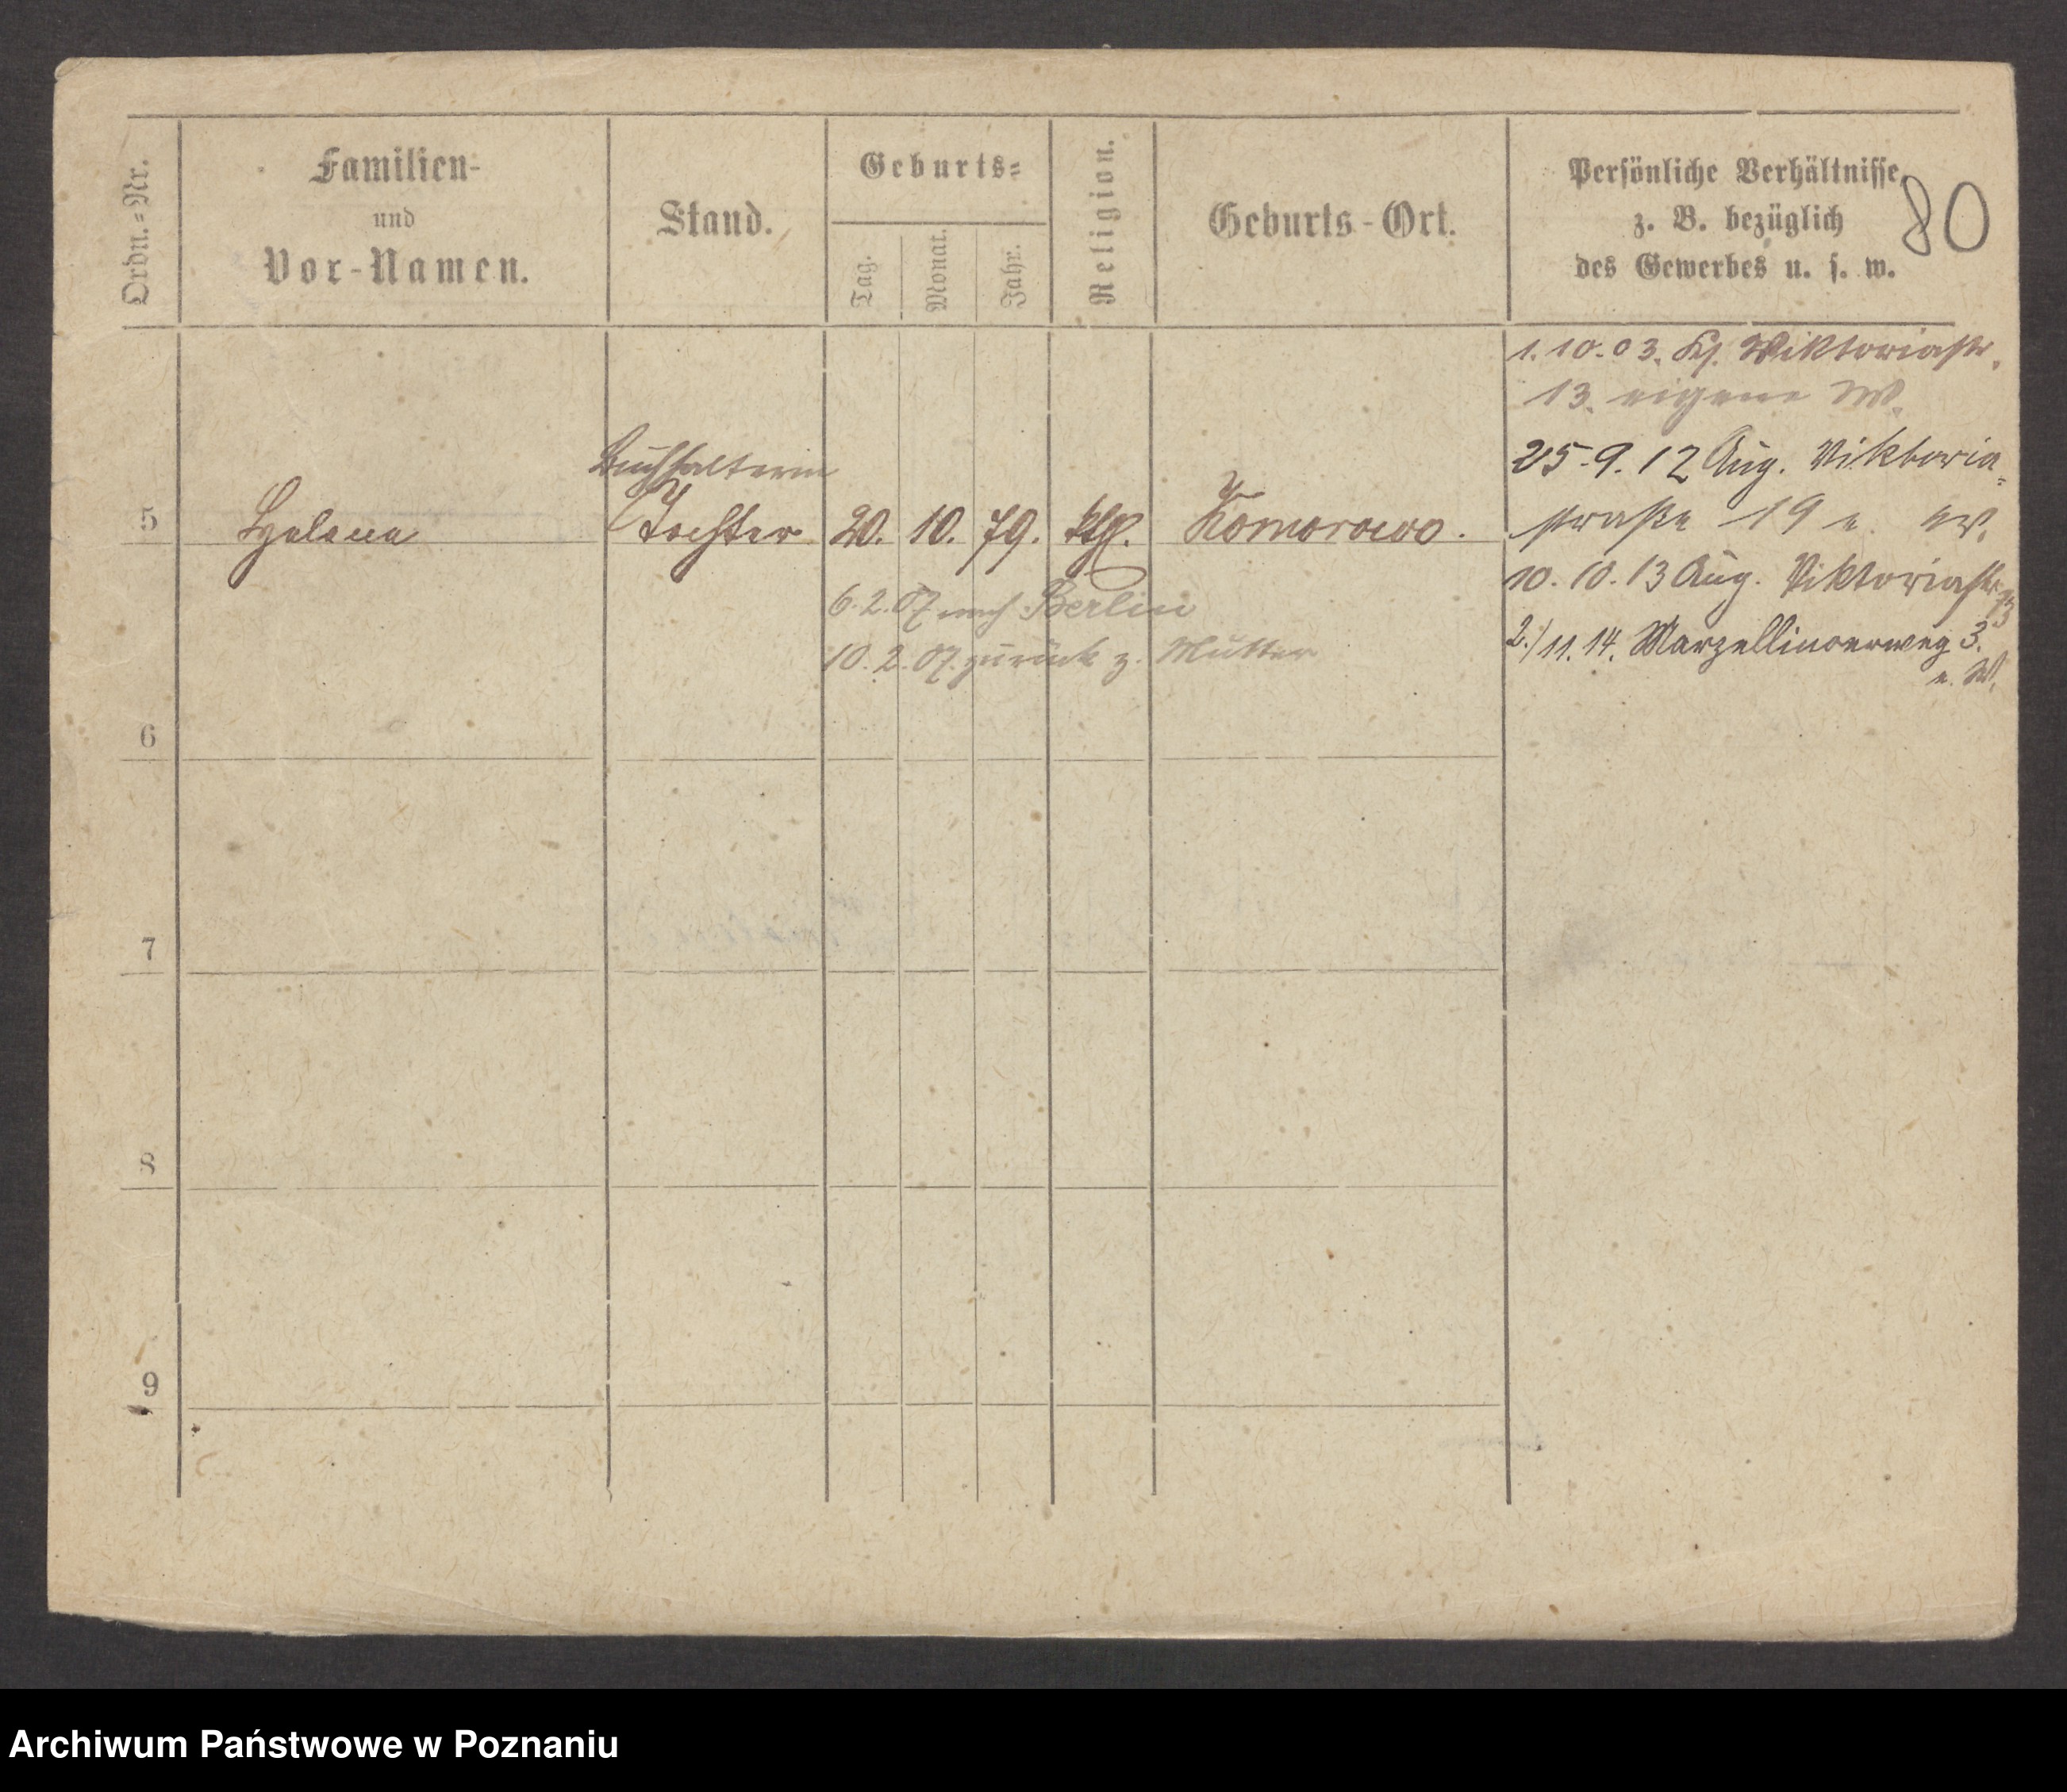 80
Ordn.=Nr.
Familien-
und
Vor-Namen.
Stand.
Geburts=
Tag.
Monat.
Jahr.
Religion.
Geburts-Ort.
Persönliche Verhältnisse,
z. B. bezüglich
des Gewerbes u. s. w.
1. 10. 03. Viktoriastr.
13. eigene W.
25. 9. 12 Aug. Viktoria=
straße 19 e. W.
10. 10. 13 Aug. Viktoriastr.
2./11. 14. Marzellinoerweg 3.
e. W.
Buchhalterin
5 Helena Tochter 20. 10. 79. kth. Komorowo.
6. 2. 07 nach Berlin
10. 2. 07. zurück z. Mutter
6
7
8
9
Archiwum Państwowe w Poznaniu